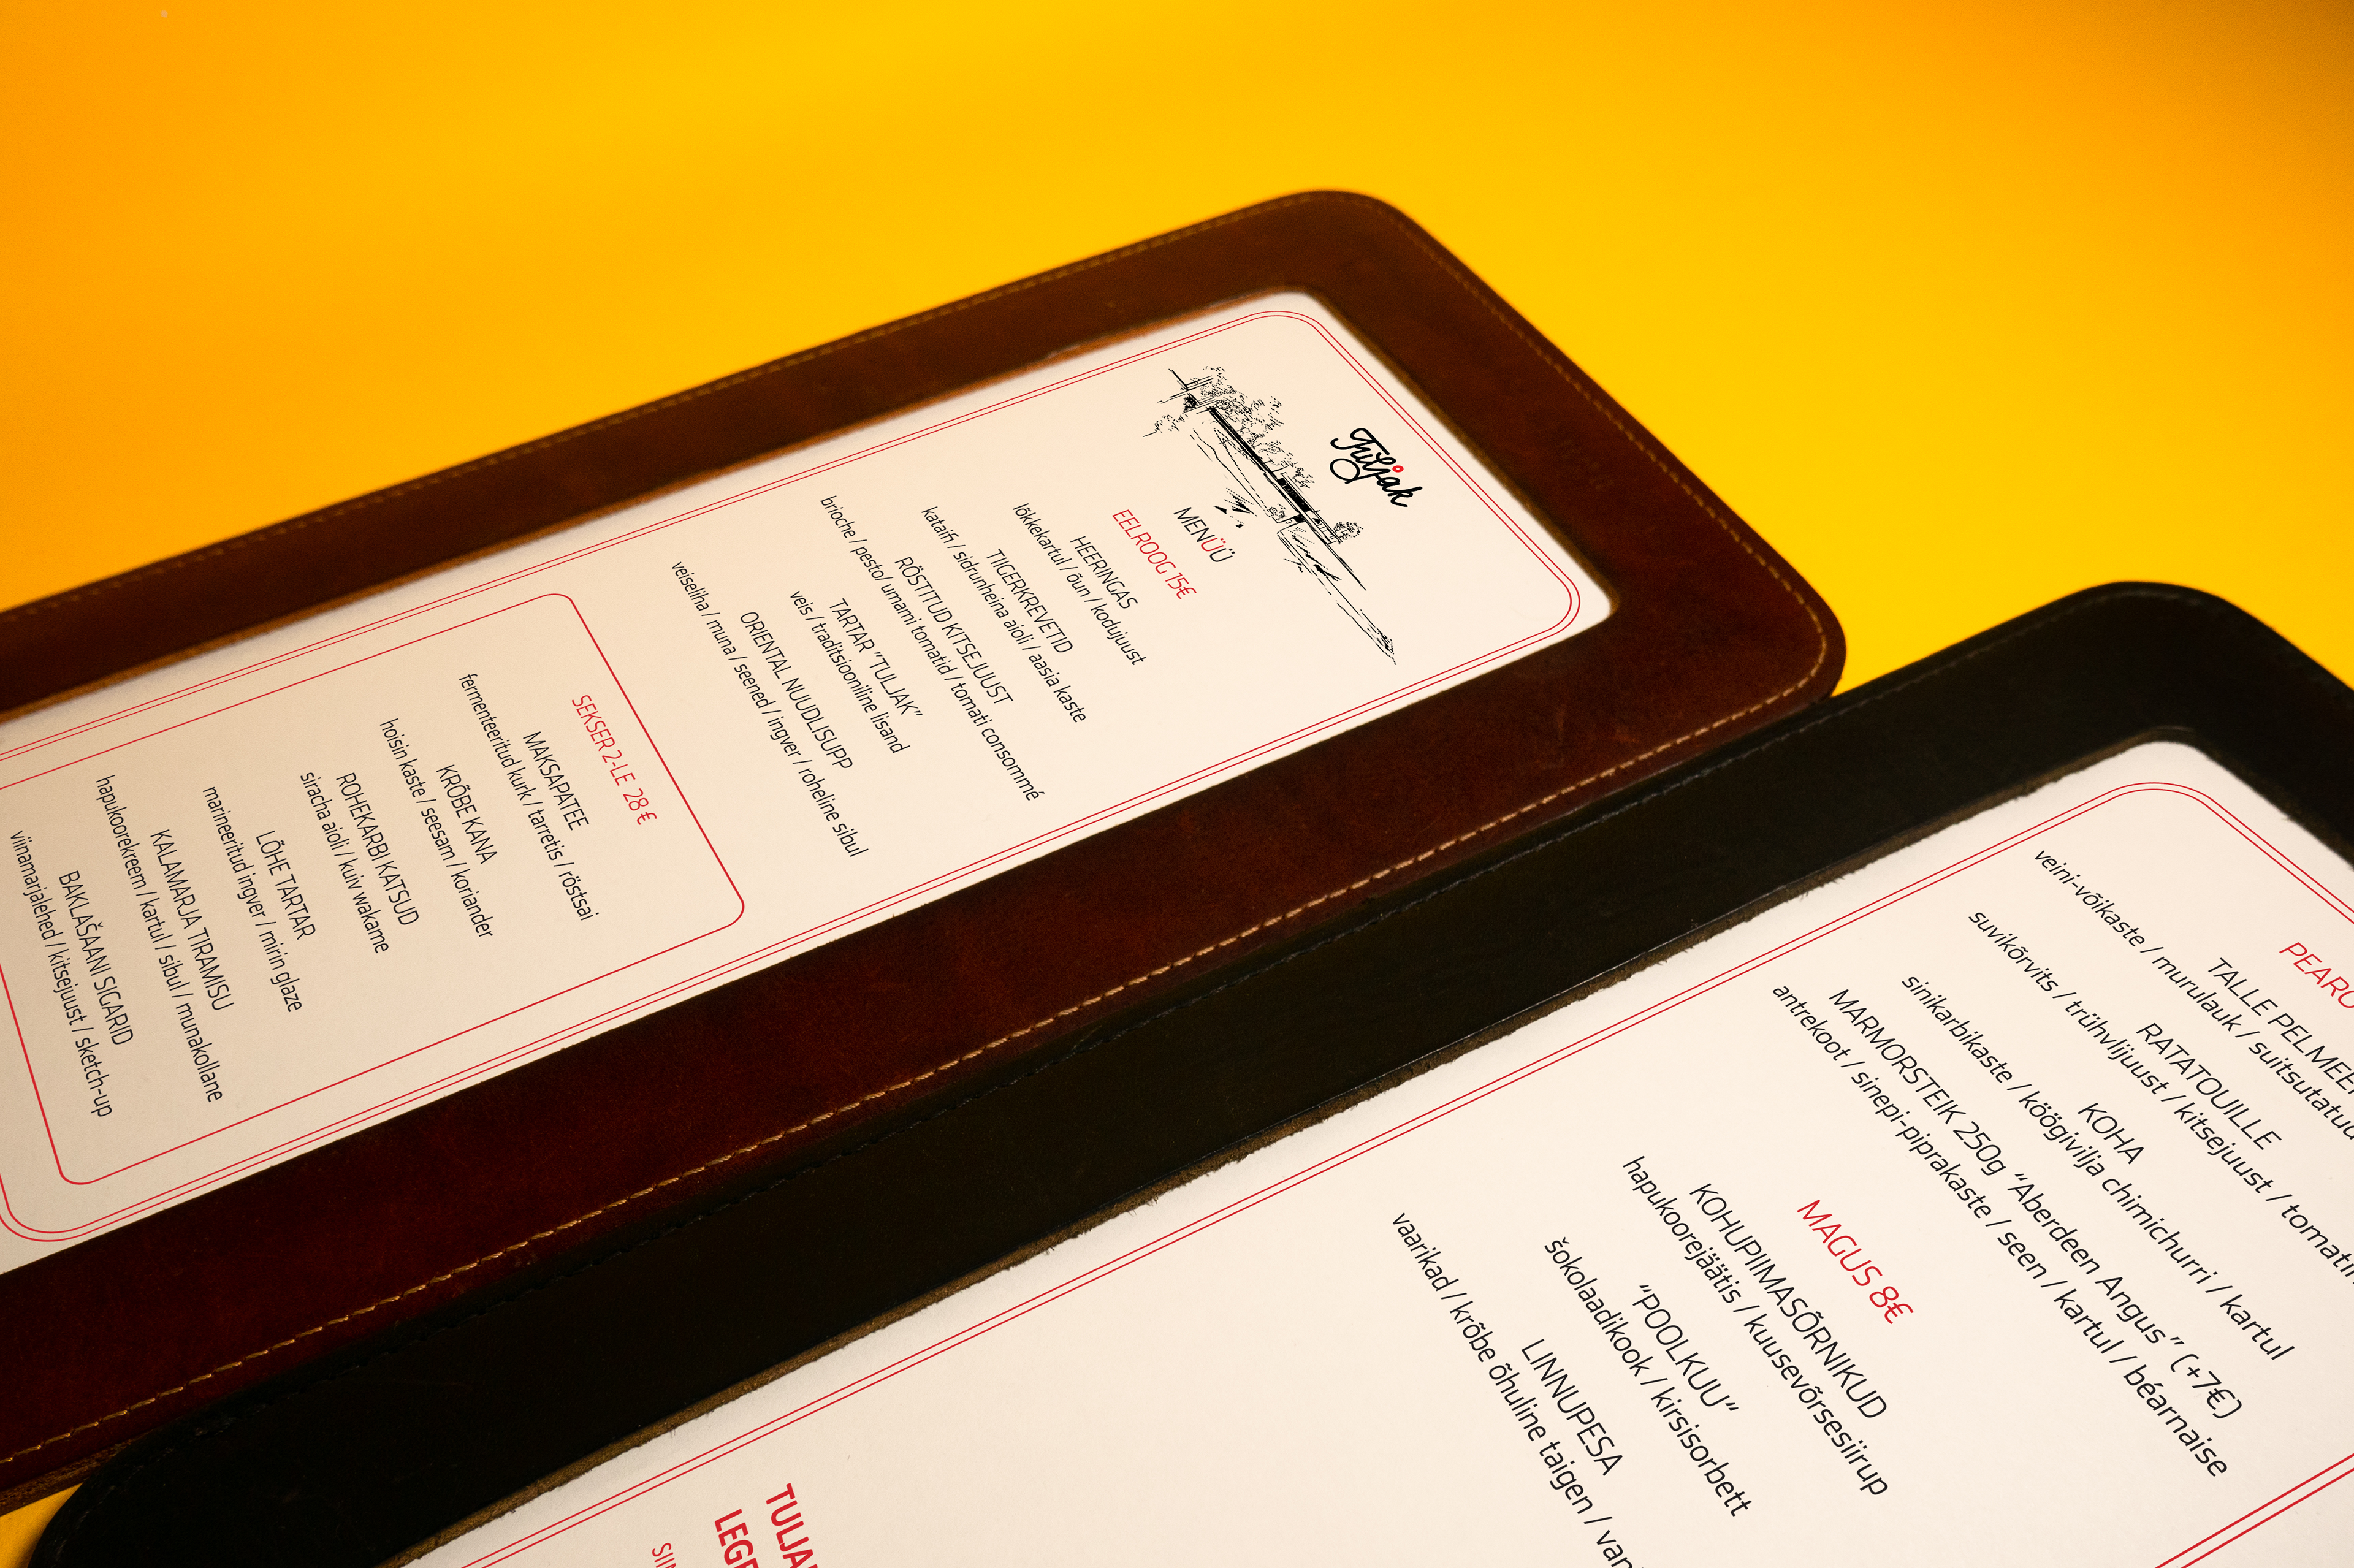 Tuljak
MENÜÜ
EELROOG 15€
HEERINGAS
lõkkekartul / õun / kodujuust
TIIGERKREVETID
kataifi / sidrunheina aioli / aasia kaste
RÖSTITUD KITSEJUUST
brioche / pesto/ umami tomatid / tomati consommé
TARTAR "TULJAK"
veis / traditsiooniline lisand
ORIENTAL NUUDLISUPP
veiseliha / muna / seened / ingver / roheline sibul
SEKSER 2-LE 28 €
MAKSAPATEE
fermenteeritud kurk / tarretis / röstsai
KRÕBE KANA
hoisin kaste / seesam / koriander
ROHEKARBI KATSUD
siracha aioli / kuiv wakame
LÕHE TARTAR
marineeritud ingver / mirin glaze
KALAMARJA TIRAMISU
hapukoorekreem / kartul / sibul / munakollane
BAKLAŠAANI SIGARID
viinamarjalehed / kitsejuust / sketch-up
TALLE
veini-võikaste / murulauk /
RATATOUILLE
suvikõrvits / trühvlijuust / kitsejuust /
KOHA
sinikarbikaste / köögivilja chimichurri / kartul
MARMORSTEIK 250g “Aberdeen Angus” (+7€)
antrekoot / sinepi-piprakaste / seen / kartul / béarnaise
MAGUS 8€
KOHUPIIMASÕRNIKUD
hapukoorejäätis / kuusevõrsesiirup
“POOLKUU“
šokolaadikook / kirsisorbett
LINNUPESA
vaarikad / krõbe õhuline taigen /